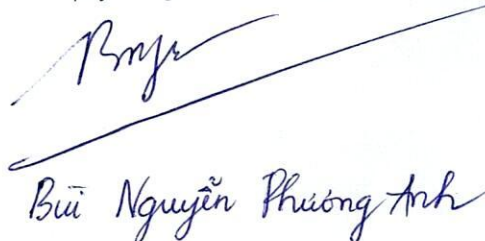 Bùi Nguyễn Phương Anh